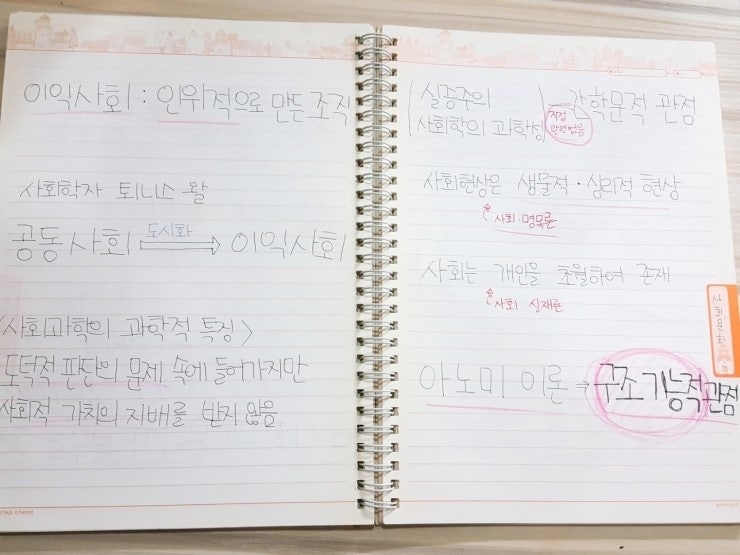 이익사회 : 인위적으로 만든 조직
사회학자 퇴니스 왈
공동사회 도시화 이익사회
<사회과학의 과학적 특징>
도덕적 판단의 문제 속에 들어가지만
사회적 가치의 지배를 받지 않음.
step ahead
실증주의
사회학의 과학성
직접
관련없음
간학문적 관점
사회현상은 생물적·심리적 현상
사회·명목론
사회는 개인을 초월하여 존재
사회 실재론
아노미 이론 → 구조기능적관점
사회문화